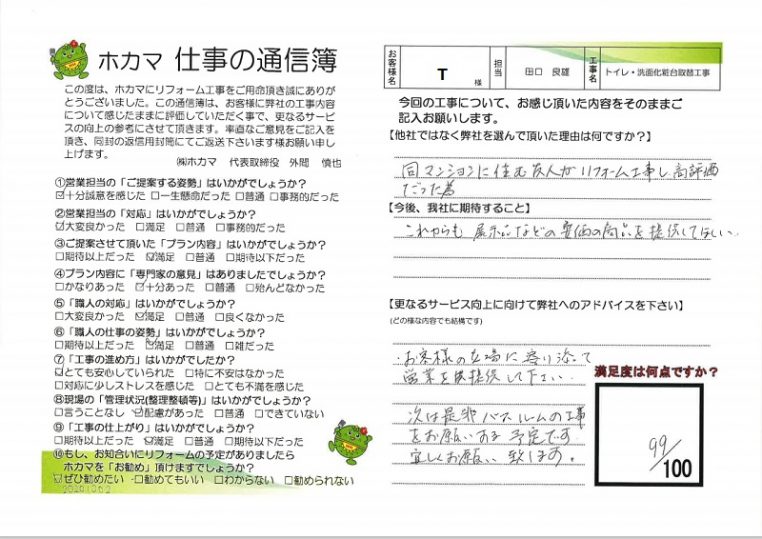 ホカマ 仕事の通信簿
この度は、ホカマにリフォーム工事をご用命頂き誠にありが
とうございました。この通信簿は、お客様に弊社の工事内容
について感じたままに評価していただく事で、更なるサービ
スの向上の参考にさせて頂きます。率直なご意見をご記入を
頂き、同封の返信用封筒にてご返送下さいます様お願い申し
上げます。
㈱ホカマ 代表取締役 外間 慎也
①営業担当の「ご提案する姿勢」はいかがでしょうか?
☑十分誠意を感じた □一生懸命だった □普通 □事務的だった
②営業担当の「対応」はいかがでしょうか?
☑大変良かった □満足 □普通 □事務的だった
③ご提案させて頂いた「プラン内容」はいかがでしょうか?
□期待以上だった ☑満足 □普通 □期待以下だった
④プラン内容に「専門家の意見」はありましたでしょうか?
□かなりあった ☑十分あった □普通 □殆んどなかった
⑤「職人の対応」はいかがでしょうか?
□大変良かった ☑満足 □普通 □良くなかった
⑥「職人の仕事の姿勢」はいかがでしょうか?
□期待以上だった ☑満足 □普通 □雑だった
⑦「工事の進め方」はいかがでしたか?
☑とても安心していられた □特に不安はなかった
□対応に少しストレスを感じた □とても不満を感じた
⑧現場の「管理状況(整理整頓等)」はいかがでしょうか?
□言うことなし ☑配慮があった □普通 □できていない
⑨「工事の仕上がり」はいかがでしょうか?
□期待以上だった ☑満足 □普通 □期待以下だった
⑩もし、お知合いにリフォームの予定がありましたら
ホカマを「お勧め」頂けますでしょうか?
☑ぜひ勧めたい □勧めてもいい □わからない □勧められない
お客様名 T 様 担当 田口 良雄 工事名 トイレ・洗面化粧台取替工事
今回の工事について、お感じ頂いた内容をそのままご
記入お願いします。
【他社ではなく弊社を選んで頂いた理由は何ですか?】
同マンションに住む友人がリフォーム工事し高評価
だった為
【今後、我社に期待すること】
これからも展示品などの安価の商品を提供してほしい。
【更なるサービス向上に向けて弊社へのアドバイスを下さい】
(どの様な内容でも結構です)
・お客様の立場に寄り添って
営業を提供して下さい
次は是非バスルームの工事
をお願いする予定です
宜しくお願い致します。
満足度は何点ですか?
99/100